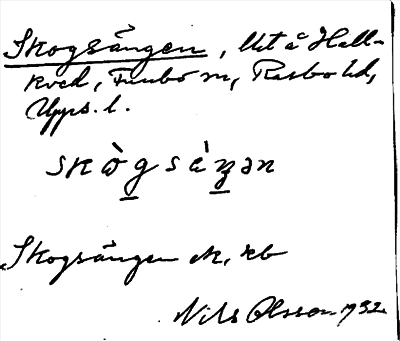 Skogsängen, Utt å Hall-
kved, Funbo sn, Rasbo hd,
Upps. l.
skògsáŋən
Skogsängen ek, kb
Nils Olsson 1932